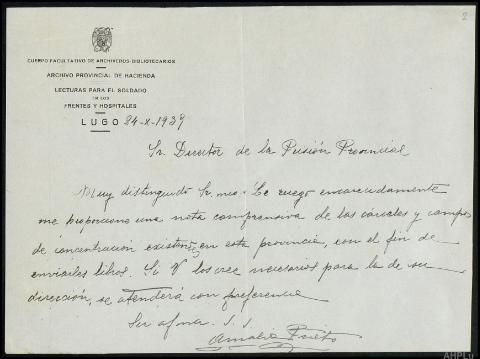 2
CUERPO FACULTATIVO DE ARCHIVEROS-BIBLIOTECARIOS
ARCHIVO PROVINCIAL DE HACIENDA
LECTURAS PARA EL SOLDADO
EN LOS
FRENTES Y HOSPITALES
LUGO 24-X-1939
Sr. Director de la Prisión Provincial
Muy distinguido Sr. mio: Le ruego encarecidamente
me proporcione una nota comprensiva de las cárceles y campos
de concentración existentes en esta provincia, con el fin de
enviarles libros. Si V los cree necesarios para la de su
dirección, se atenderá con preferencia
Su afma. S. S.
Amalia Prieto
AHPLu